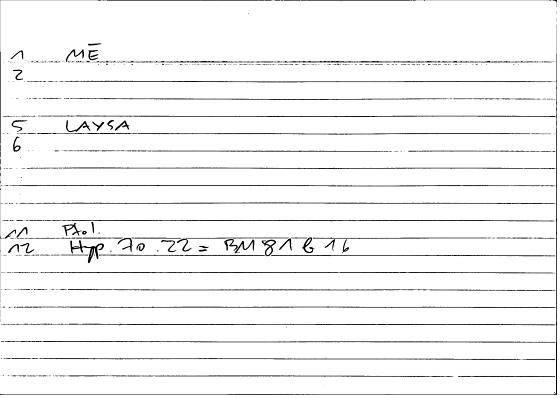 1 MĒ
2
5 LAYSA
6
11 Ptol.
12 Hyp. 70.22 = BM 81 b 16